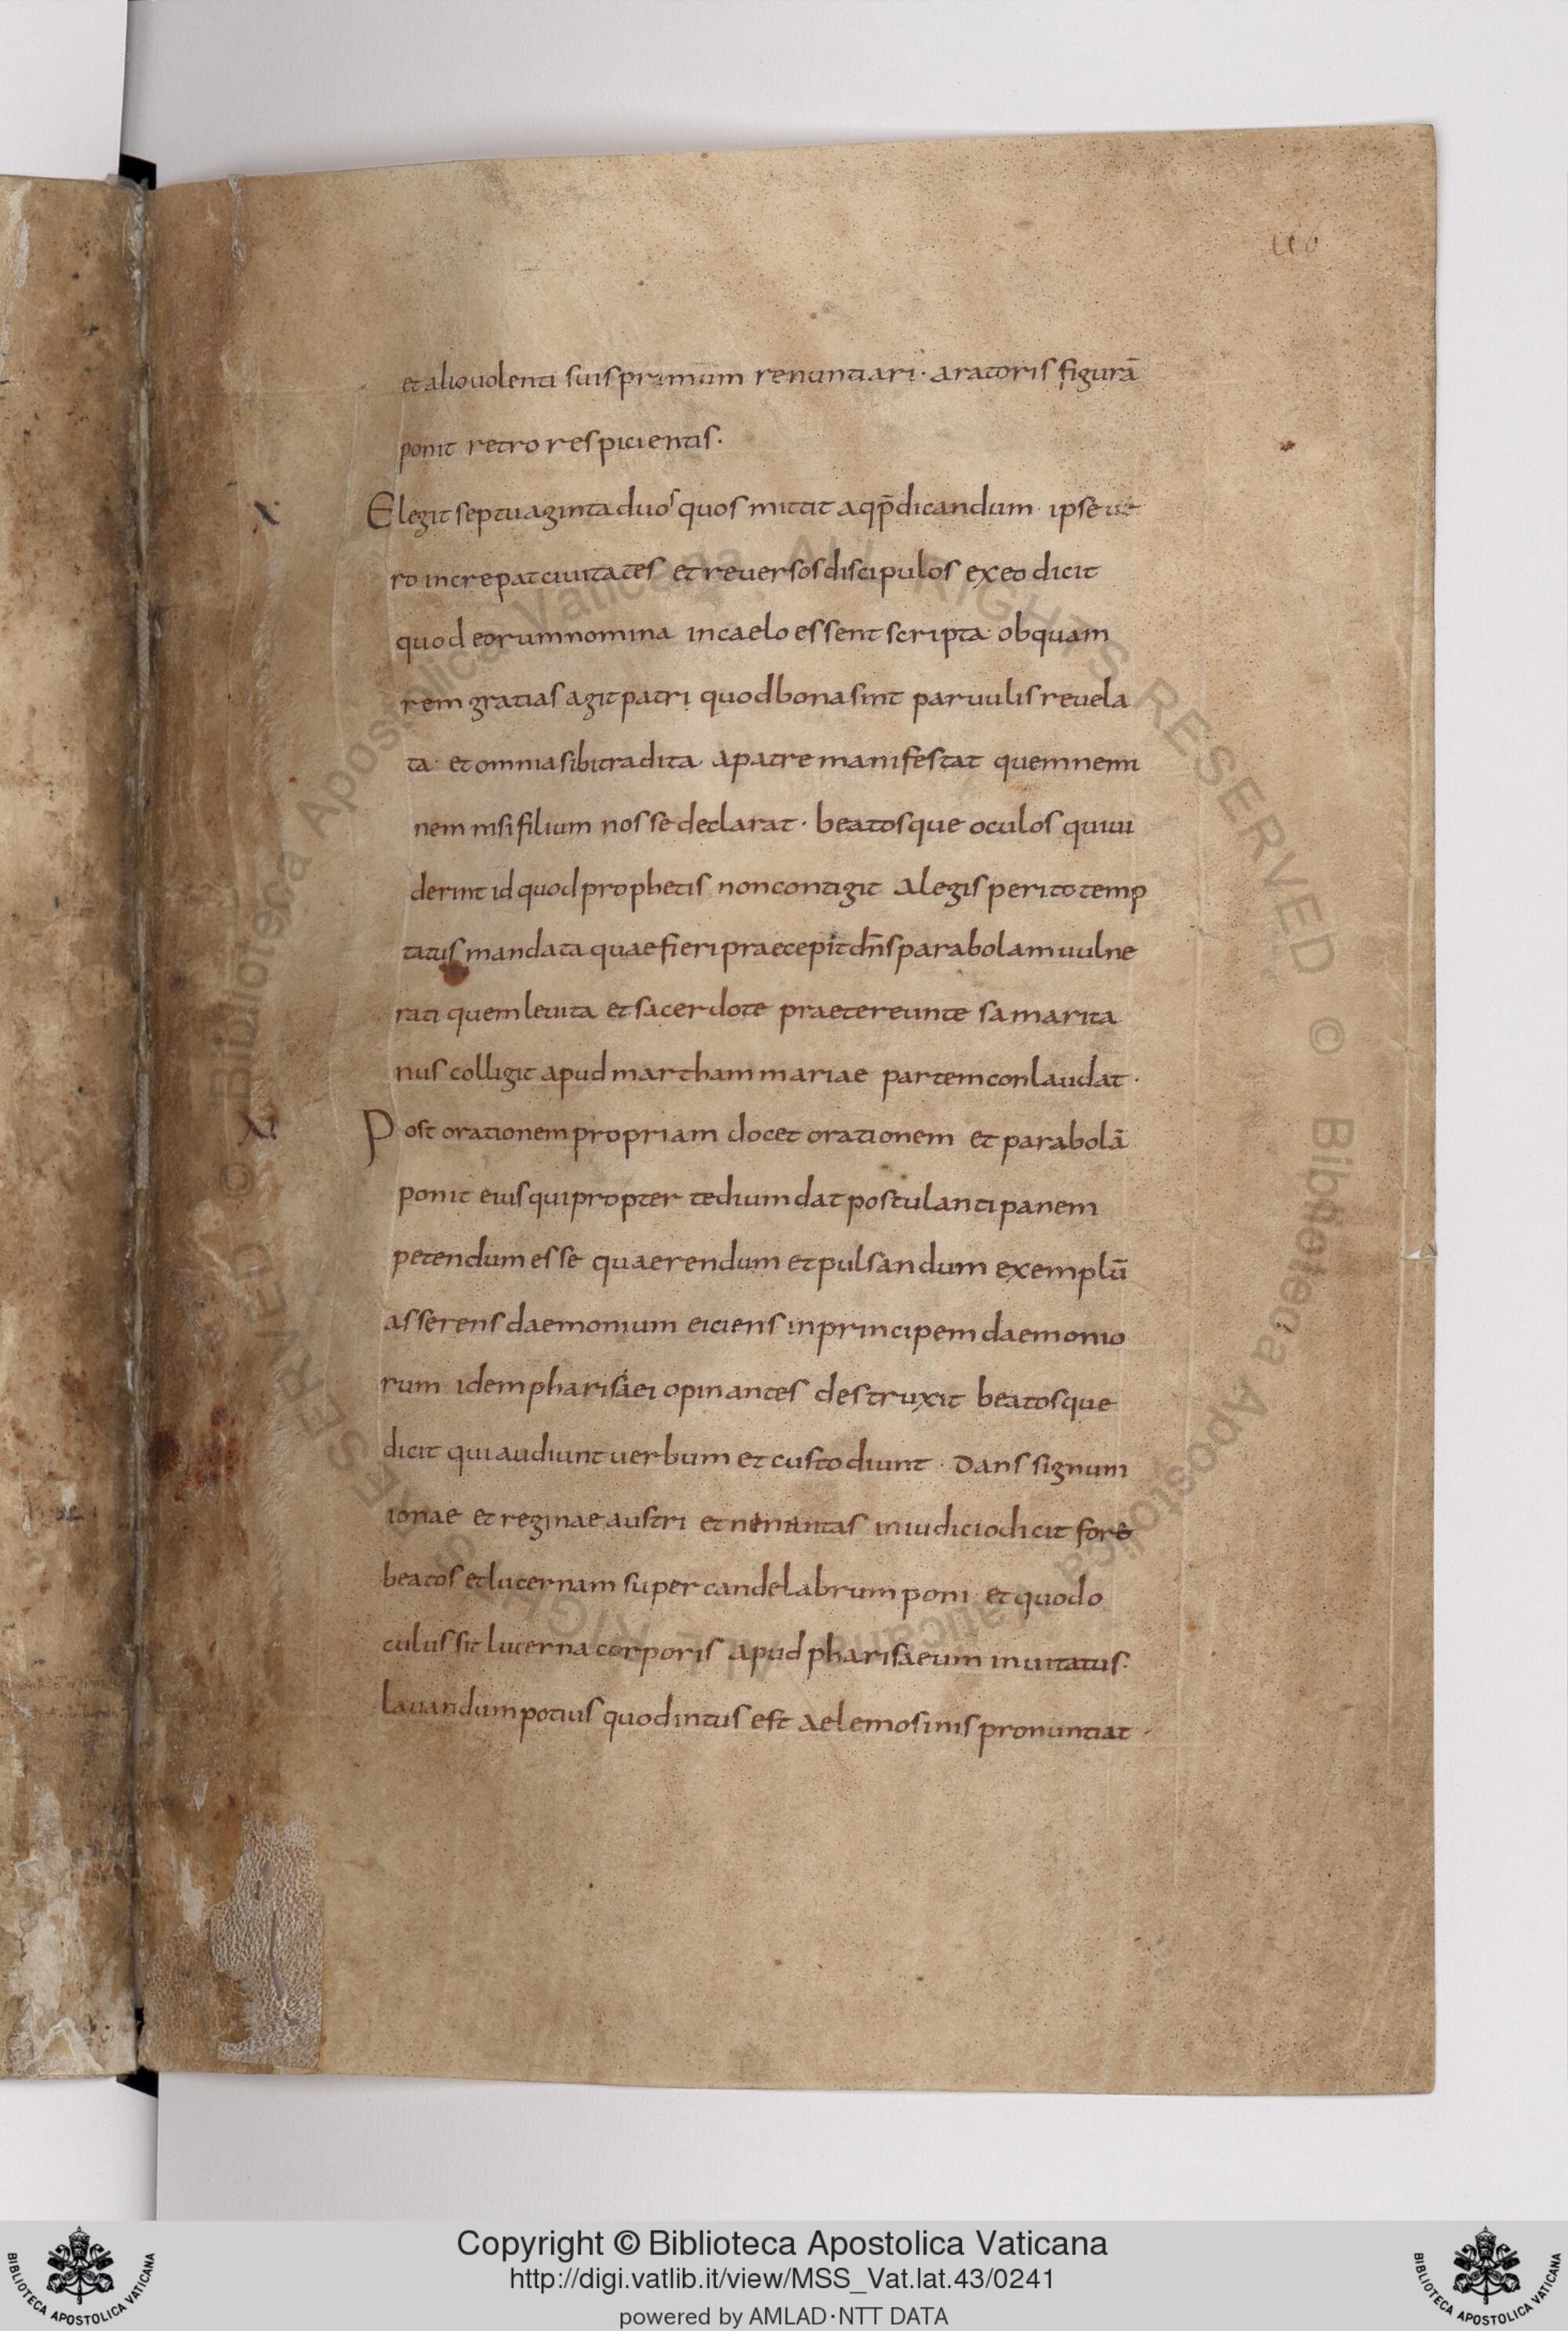 et alio uolenti suis primum renuntiari · aratoris figurā
ponit retro respicientis ·
X Elegit septuaginta duos quos mittit aqp̄dicandum · ipse ue
ro increpat ciuitates et reuersos discipulos exeo dicit
quod eorum nomina in caelo essent scripta · ob quam
rem gratias agit patri quod bona sint paruulis reuela
ta · et omnia sibi tradita a patre manifestat quem nemi
nem nisi filium nosse declarat · beatosque oculos qui ui
derint id quod prophetis non contigit A legis perito temp
tatus mandata quae fieri praecepit dn̄s parabolam uulne
rati quem leuita et sacerdote praetereunte samarita
nus colligit apud martham mariae partem conlaudat ·
XI Post orationem propriam docet orationem et parabolā
ponit eius qui propter tedium dat postulanti panem
petendum esse quaerendum et pulsandum exemplū
asserens daemonium eiciens in principem daemonio
rum idem pharisaei opinantes destruxit beatosque
dicit qui audiunt uerbum et custodiunt · Dans signum
ionae et reginae austri et in iudicio dicit fore
beatos et lucernam super candelabrum poni · et quod o
culus sit lucerna corporis apud pharisaeum inuitatus ·
lauandum potius quod intus est aelemosinis pronuntiat ·
Copyright © Biblioteca Apostolica Vaticana
http://digi.vatlib.it/view/MSS_Vat.lat.43/0241
powered by AMLAD·NTT DATA
BIBLIOTECA APOSTOLICA VATICANA
BIBLIOTECA APOSTOLICA VATICANA